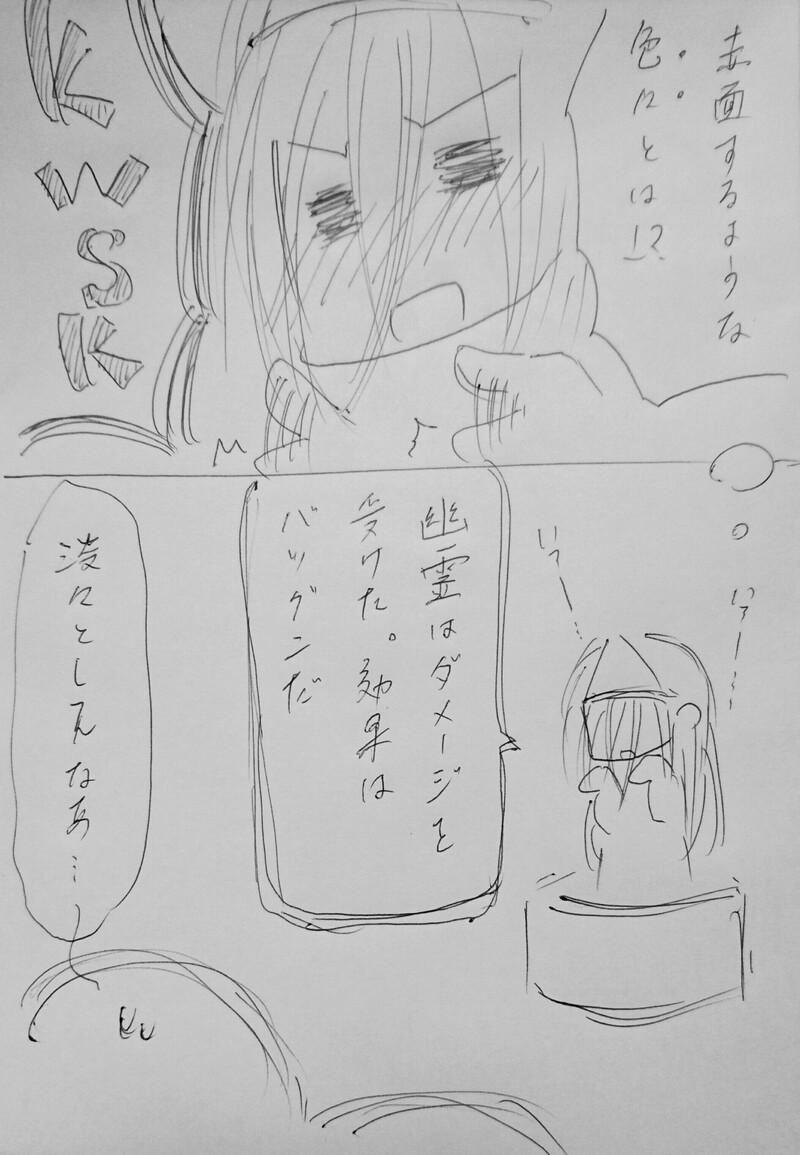 赤面するような
色々とは!?
K
W
S
K
いやー…
いやー…
幽霊はダメージを
受けた。効果は
バツグンだ
淡々としてんなあ…